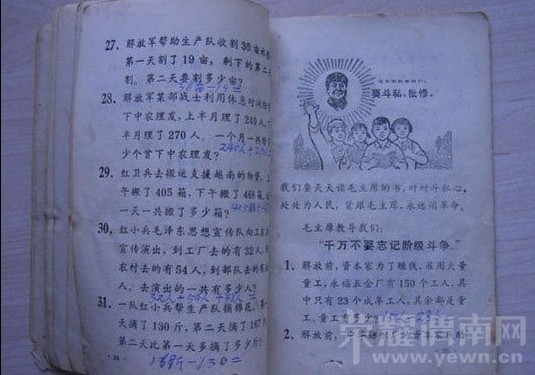 27. 解放军帮助生产队收割36亩水
第一天割了19亩，剩下的第二天
割。第二天要割多少亩？
28. 解放军某部战士利用休息时间给
下中农理发，上半月理了240人，下
半月理了270人。一个月一共给
少个贫下中农理发？
240人+2
29. 红卫兵去搬运支援越南的物资，上
午搬了405箱，下午搬了468箱，
一天一共搬了多少箱？
30. 红小兵毛泽东思想宣传队向工农兵
宣传演出，到工厂去的有32人，到
农村去的有54人，到部队去的有
人。去演出的一共有多少人？
32人+54人+
31. 一队红小兵帮生产队摘棉花。第一
天摘了130斤，第二天摘了167
天比第一天多摘了多少斤？
-130=
要斗私，批修。
我们要天天读毛主席的书，时时斗私心，
处处为人民，紧跟毛主席，永远闹革命。
毛主席教导我们：
“千万不要忘记阶级斗争。”
1. 解放前，资本家为了赚钱，雇用大量
童工，永福五金厂有150个工人，其
中只有23个成年工人，其余都是童
工，童工有多少？
2. 解放前，
荣耀渭南网
www.yewn.cn